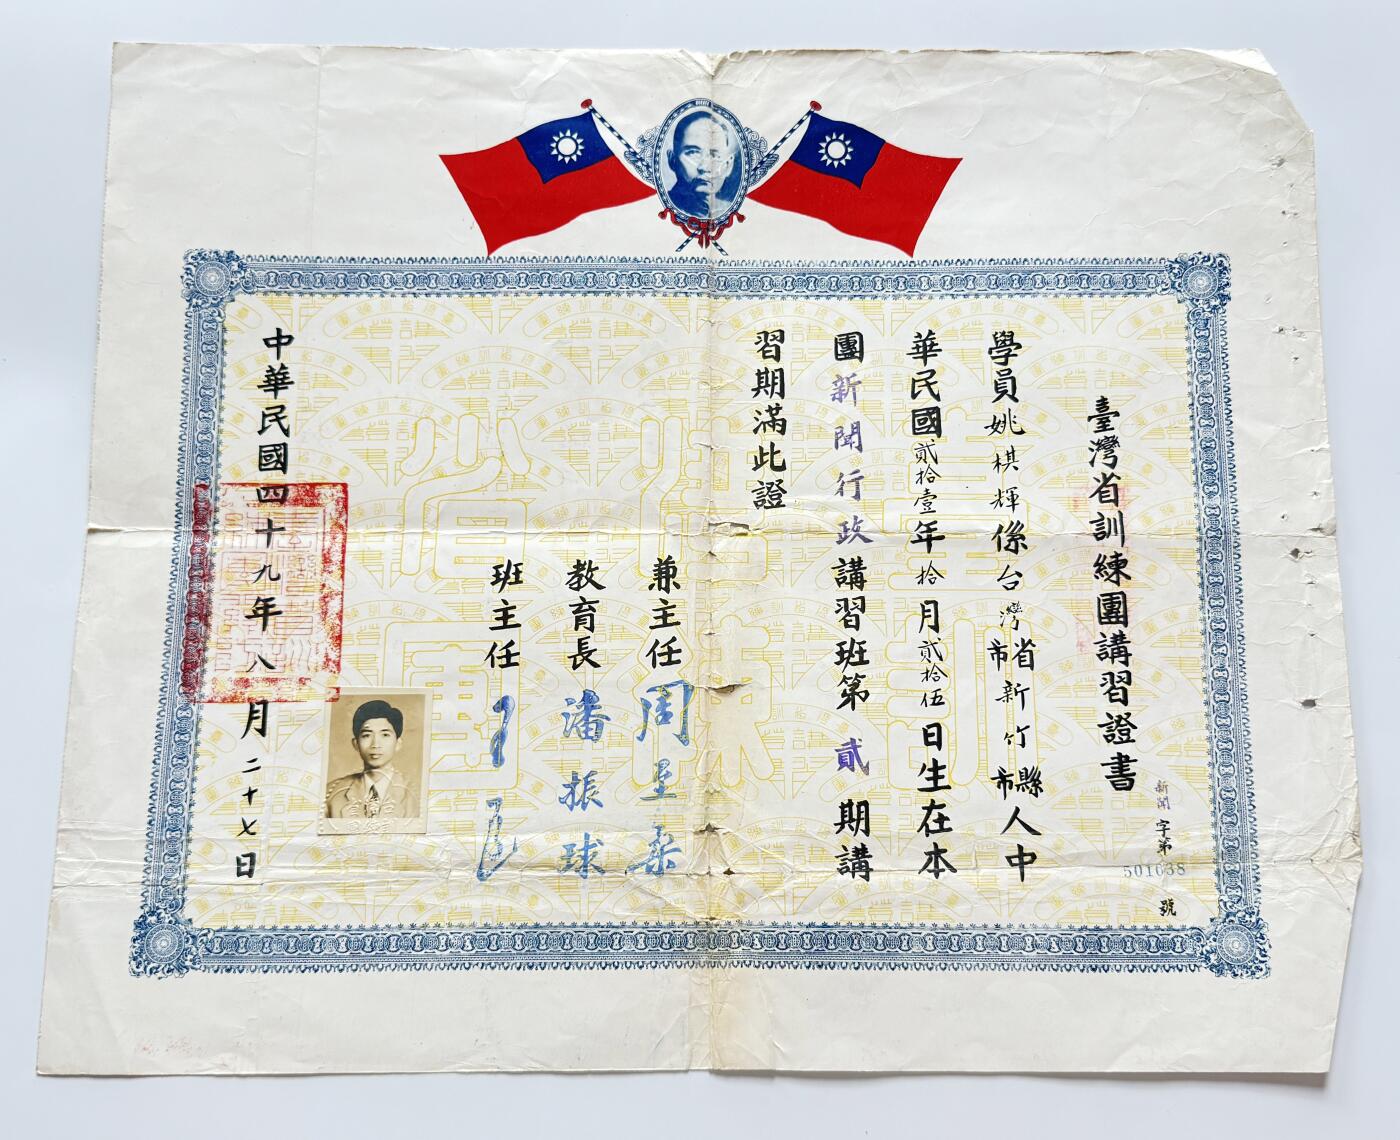 臺灣省訓練團講習證書
新聞字第501038號
學員姚棋輝係台灣省市新竹縣市人中
華民國貳拾壹年拾月貳拾伍日生在本
團新聞行政講習班第貳期講
習期滿此證
兼主任周至柔
教育長潘振球
班主任
中華民國四十九年八月二十七日